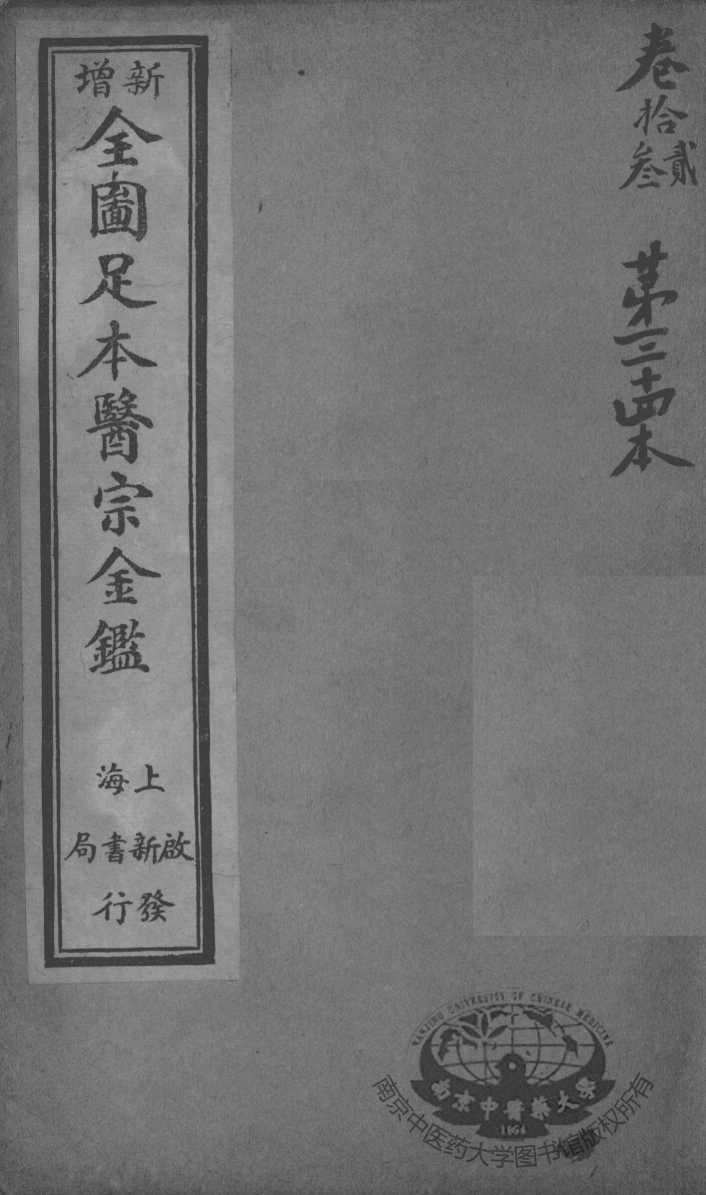 卷拾貳叁
第三十四本
新增
全圖足本醫宗金鑑
上海
啟新書局
發行
NANJING UNIVERSITY OF CHINESE MEDICINE
南京中醫藥大學
1954
南京中医药大学图书馆版权所有